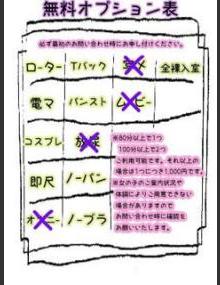 無料オプション表
必ず最初のお問い合わせ時にお申し付けください。
ローター Tバック 全裸入室
電マ パンスト ムービー
コスプレ
※80分以上で1つ
100分以上で2つ
ご利用可能です。それ以上の
場合は1つにつき1,000円です。
即尺 ノーパン
※女の子のご案内状況や
体調によりご用意できない
場合がありますので
お問い合わせ時に確認を
お願いいたします。
オナニー ノーブラ